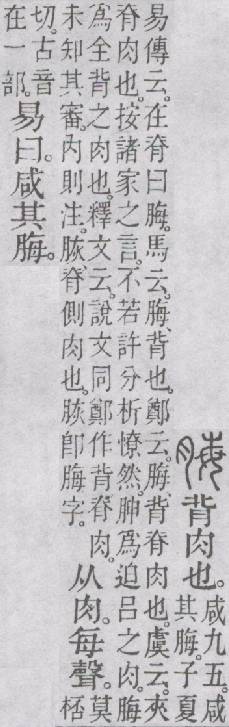 脢背肉也。咸九五。咸其脢。子夏
易傳云。在脊曰脢。馬云。脢、背也。鄭云。脢、背脊肉也。虞云。夾
脊肉也。按諸家之言。不若許分析憭然。胂爲迫呂之肉。脢
爲全背之肉也。釋文云。說文同。鄭作背脊肉。
未知其審。內則注。脄、脊側肉也。脄卽脢字。从肉。每聲。莫桮
切。古音在一部。易曰。咸其脢。